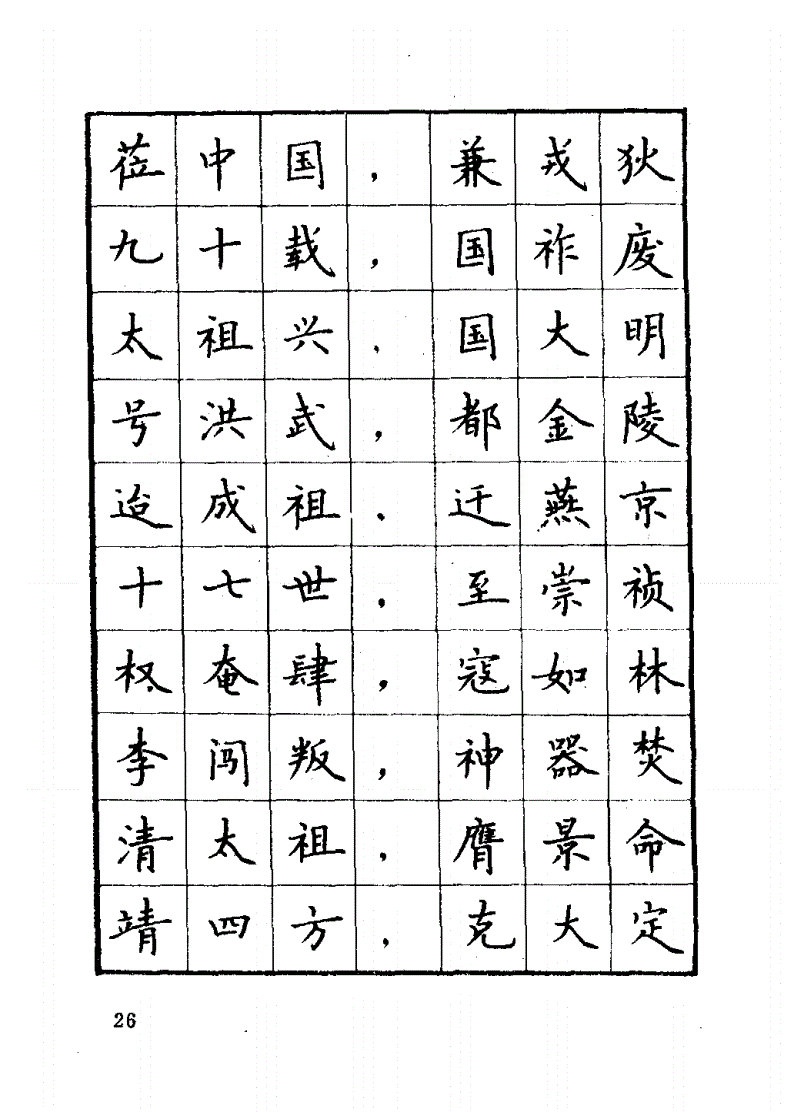 莅中国，兼戎狄
九十载，国祚废
太祖兴，国大明
号洪武，都金陵
迨成祖，迁燕京
十七世，至崇祯
权奄肆，寇如林
李闯叛，神器焚
清太祖，膺景命
靖四方，克大定
26